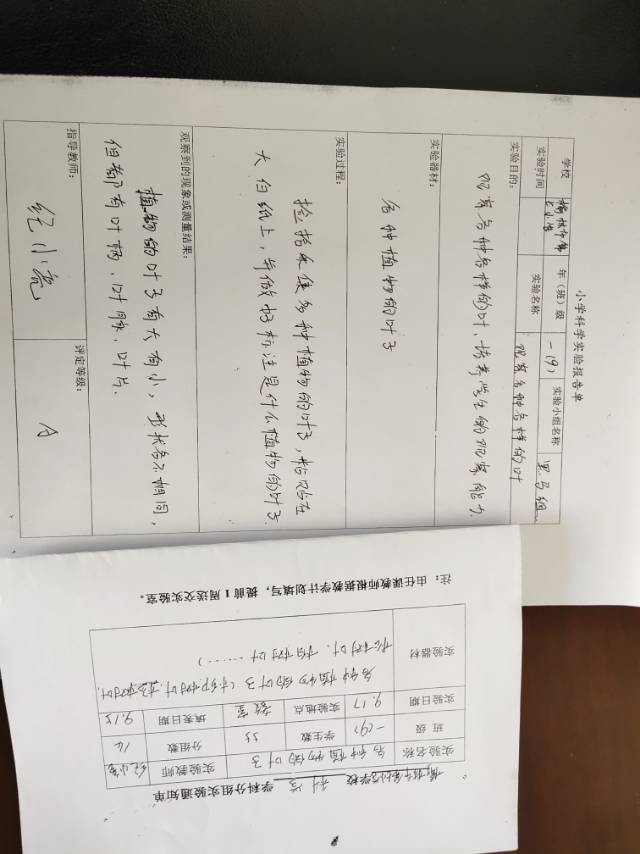 小学科学实验报告单
学校
年（班）级 一（9） 实验小组名称 黑马组
实验时间
实验名称 观察各种各样的叶
实验目的：
观察各种各样的叶，培养学生的观察能力
实验器材：
各种植物的叶子
实验过程：
捡拾采集多种植物的叶子，粘贴在
大白纸上，并做好标注是什么植物的叶子
观察到的现象或测量结果：
植物的叶子有大有小，形状各不相同，
但都有叶柄、叶脉、叶片。
指导教师：
纪小亮
评定等级：
A
学校 科学 学科分组实验通知单
实验名称 各种植物的叶子 实验教师 纪小亮
班级 一（9） 学生数 分组数
实验日期 9.17 实验地点 教室 填表日期 9.15
实验器材
各种植物的叶子
松树叶、柏树叶 ……）
注：由任课教师根据教学计划填写，提前1周送交实验室。